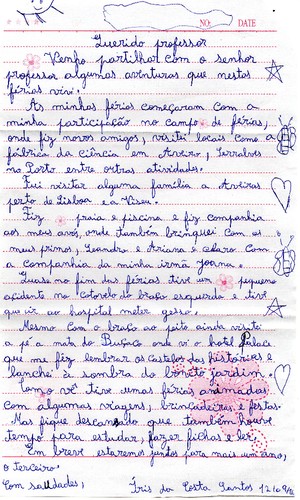 NO. DATE
Querido professor
Venho partilhar com o senhor
professor algumas aventuras que nestas
férias vivi.
As minhas férias começaram com a
minha participação no campo de férias,
onde fiz novos amigos, visitei locais como a
fábrica da Ciência em Aveiro, Serralves
no Porto entre outras atividades.
Fui visitar alguma família a Aveiras
perto de Lisboa e a Viseu.
Fiz praia e piscina e fiz companhia
aos meus avós, onde também brinquei com os
meus primos, Leandro e Ariana e claro com
a companhia da minha irmã Joana.
Quase no fim das férias tive um pequeno
acidente no cotovelo do braço esquerdo e tive
que ir ao hospital meter gesso.
Mesmo com o braço ao peito ainda visitei
a pé a mata do Buçaco onde vi o hotel Palace
que me fez lembrar os castelos das histórias e
lanchei à sombra do bonito jardim.
Como vê tive umas férias animadas
com algumas viagens, brincadeiras e festas.
Mas fique descansado que também houve
tempo para estudar, fazer fichas e ler.
Em breve estaremos juntos para mais um ano,
o terceiro.
Com saudades, Íris da Costa Santos